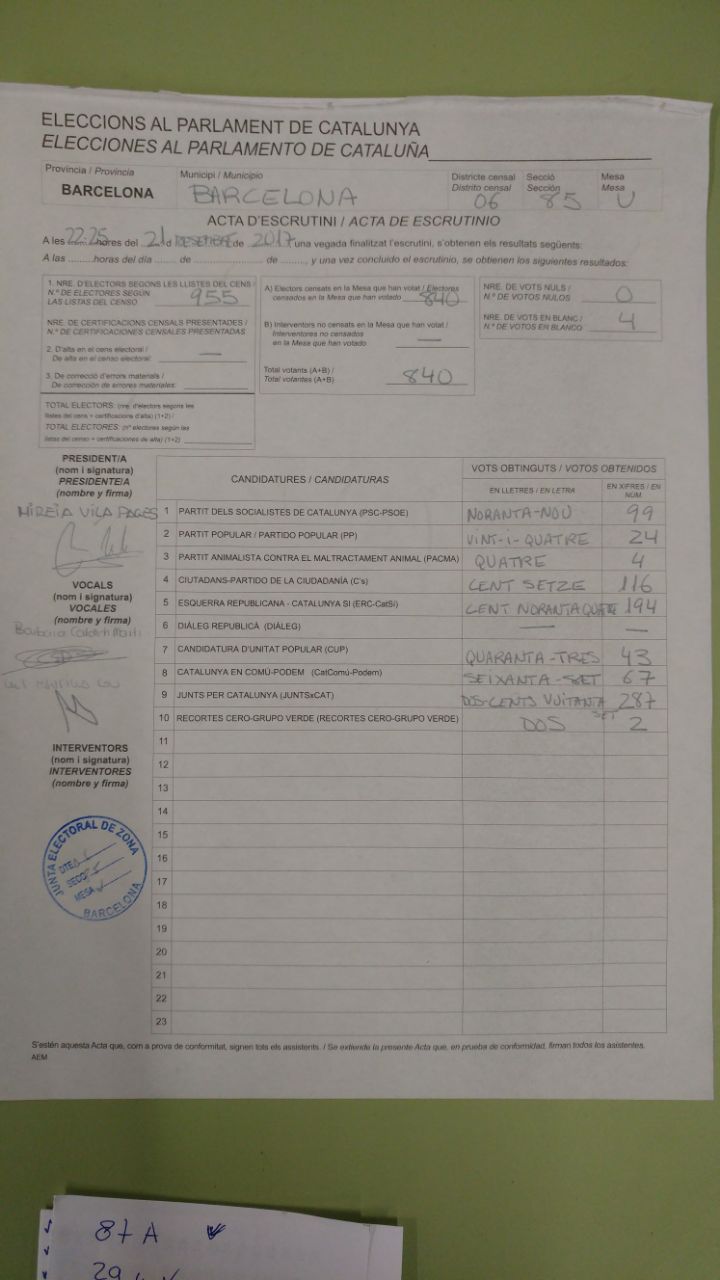 ELECCIONS AL PARLAMENT DE CATALUNYA
ELECCIONES AL PARLAMENTO DE CATALUÑA
Província / Provincia
BARCELONA
Municipi / Municipio
BARCELONA
Districte censal
Distrito censal
06
Secció
Sección
85
Mesa
Mesa
U
ACTA D'ESCRUTINI / ACTA DE ESCRUTINIO
A les 22.25 hores del 21 d DESEMBRE de 2017 una vegada finalitzat l'escrutini, s'obtenen els resultats següents:
A las ......... horas del día ...... de .................. de ........, y una vez concluido el escrutinio, se obtienen los siguientes resultados:
1. NRE. D'ELECTORS SEGONS LES LLISTES DEL CENS /
N.º DE ELECTORES SEGÚN
LAS LISTAS DEL CENSO
955
NRE. DE CERTIFICACIONS CENSALS PRESENTADES /
N.º DE CERTIFICACIONES CENSALES PRESENTADAS
2. D'alta en el cens electoral /
De alta en el censo electoral: —
3. De correcció d'errors materials /
De corrección de errores materiales:
TOTAL ELECTORS: (nre. d'electors segons les
llistes del cens + certificacions d'alta) (1+2) /
TOTAL ELECTORES: (nº electores según las
listas del censo + certificaciones de alta) (1+2)
A) Electors censats en la Mesa que han votat / Electores
censados en la Mesa que han votado 840
B) Interventors no censats en la Mesa que han votat /
Interventores no censados
en la Mesa que han votado —
Total votants (A+B) /
Total votantes (A+B) 840
NRE. DE VOTS NULS /
N.º DE VOTOS NULOS 0
NRE. DE VOTS EN BLANC /
N.º DE VOTOS EN BLANCO 4
PRESIDENT/A
(nom i signatura)
PRESIDENTE/A
(nombre y firma)
MIREIA VILA PAGES
VOCALS
(nom i signatura)
VOCALES
(nombre y firma)
INTERVENTORS
(nom i signatura)
INTERVENTORES
(nombre y firma)
JUNTA ELECTORAL DE ZONA
DTE.
SECC.
MESA
BARCELONA
CANDIDATURES / CANDIDATURAS
VOTS OBTINGUTS / VOTOS OBTENIDOS
EN LLETRES / EN LETRA
EN XIFRES / EN NÚM.
1 PARTIT DELS SOCIALISTES DE CATALUNYA (PSC-PSOE) NORANTA-NOU 99
2 PARTIT POPULAR / PARTIDO POPULAR (PP) VINT-I-QUATRE 24
3 PARTIT ANIMALISTA CONTRA EL MALTRACTAMENT ANIMAL (PACMA) QUATRE 4
4 CIUTADANS-PARTIDO DE LA CIUDADANÍA (C's) CENT SETZE 116
5 ESQUERRA REPUBLICANA - CATALUNYA SI (ERC-CatSí) CENT NORANTA QUATRE 194
6 DIÀLEG REPUBLICÀ (DIÀLEG) — —
7 CANDIDATURA D'UNITAT POPULAR (CUP) QUARANTA-TRES 43
8 CATALUNYA EN COMÚ-PODEM (CatComú-Podem) SEIXANTA-SET 67
9 JUNTS PER CATALUNYA (JUNTSxCAT) DOS-CENTS VUITANTA SET 287
10 RECORTES CERO-GRUPO VERDE (RECORTES CERO-GRUPO VERDE) DOS 2
11
12
13
14
15
16
17
18
19
20
21
22
23
S'estén aquesta Acta que, com a prova de conformitat, signen tots els assistents. / Se extiende la presente Acta que, en prueba de conformidad, firman todos los asistentes.
AEM
87 A
29